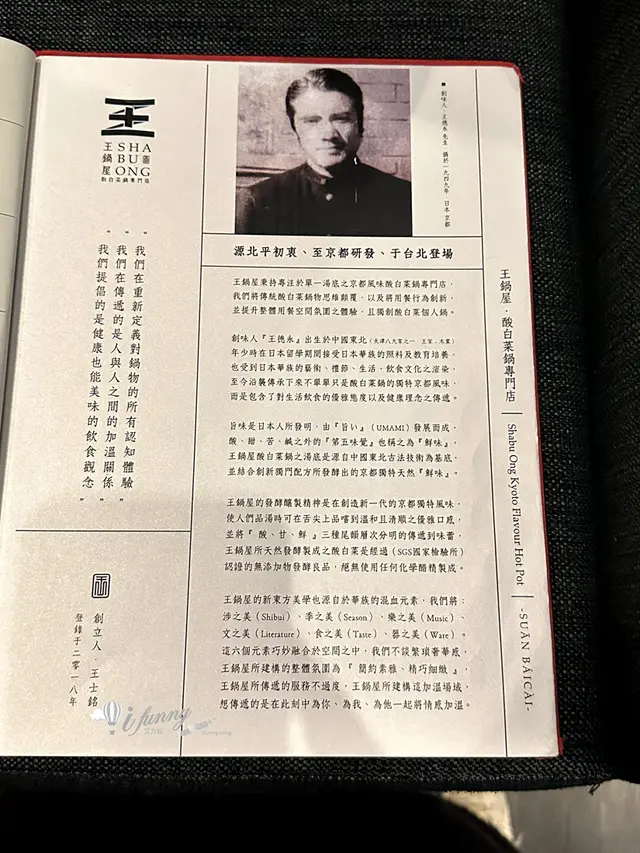 王
王鍋屋
SHA
BU 圕
ONG
酸白菜鍋專門店
"我們在重新定義對鍋物的所有認知體驗"
"我們在傳遞的是人與人之間的加溫關係"
"我們提倡的是健康也能美味的飲食觀念"
創立人．王士銘
登錄于二零一八年
■ 創味人．王德永 先生．攝於一九四九年．日本 京都
源北平初衷、至京都研發、于台北登場
王鍋屋秉持專注於單一湯底之京都風味酸白菜鍋專門店，
我們將傳統酸白菜鍋物思維顛覆，以及將用餐行為創新，
並提升整體用餐空間氛圍之體驗，且獨創酸白菜個人鍋。
創味人『王德永』出生於中國東北(天津八大家之一．王家．木業)
年少時在日本留學期間接受日本華族的照料及教育培養，
也受到日本華族的藝術、禮節、生活、飲食文化之渲染，
至今沿襲傳承下來不單單只是酸白菜鍋的獨特京都風味，
而是包含了對生活飲食的優雅態度以及健康理念之傳遞。
旨味是日本人所發明，由『旨い』(UMAMI)發展而成，
酸、甜、苦、鹹之外的『第五味覚』也稱為『鮮味』，
王鍋屋酸白菜鍋之湯底是源自中國東北古法技術為基底，
並結合創新獨門配方所發酵出的京都獨特天然『鮮味』。
王鍋屋的發酵釀製精神是在創造新一代的京都獨特風味，
使人們品湯時可在舌尖上品嚐到溫和且清順之優雅口感，
並將『酸、甘、鮮』三種尾韻層次分明的傳遞到味蕾，
王鍋屋所天然發酵製成之酸白菜是經過(SGS國家檢驗所)
認證的無添加物發酵良品，絕無使用任何化學醋精製成。
王鍋屋的新東方美學也源自於華族的混血元素，我們將：
涉之美(Shibui)、季之美(Season)、樂之美(Music)
文之美(Literature)、食之美(Taste)、器之美(Ware)。
這六個元素巧妙融合於空間之中，我們不談繁瑣奢華感，
王鍋屋所建構的整體氛圍為『簡約素雅、精巧細緻』，
王鍋屋所傳遞的服務不過度，王鍋屋所建構這加溫場域，
想傳遞的是在此刻中為你、為我、為他一起將情感加溫。
王鍋屋．酸白菜鍋專門店
Shabu Ong Kyoto Flavour Hot Pot
-SUĀN BÁICÀI-
i funny